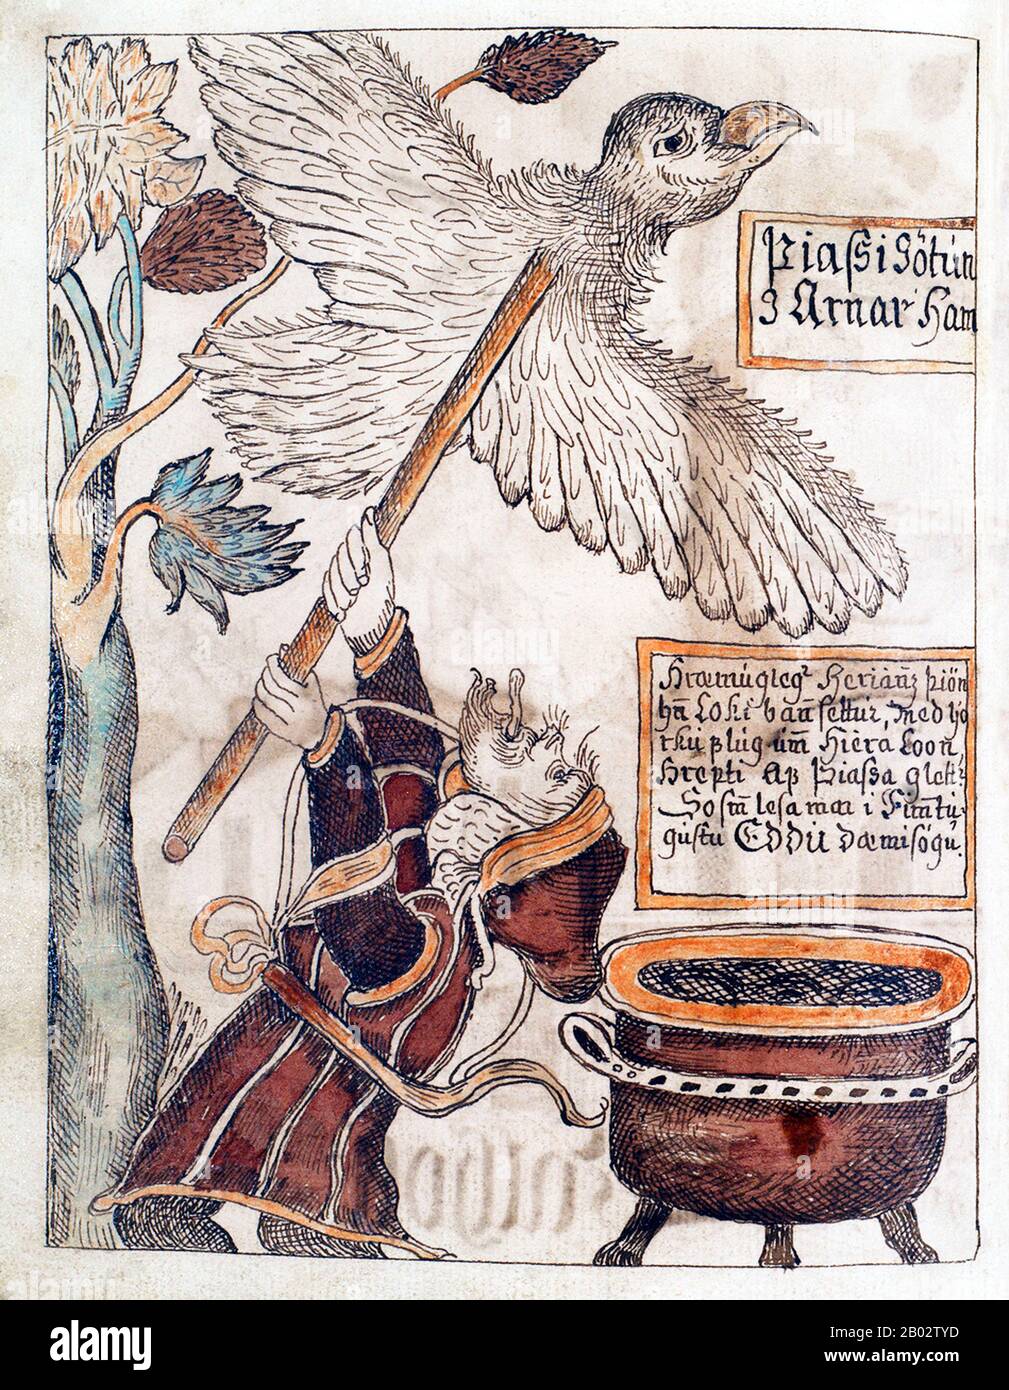 Þiassi Jötun
J Arnar Ham
Hræmúgleg² Herianz þión
hn Loki van settúr, med
þlúg um Hiera Loon,
Hrepti Af Þiassa
So sm lesa ma i Fimtú
gustu EDDU dæmisögú.
alamy
Image ID: 2B02TYD
www.alamy.com